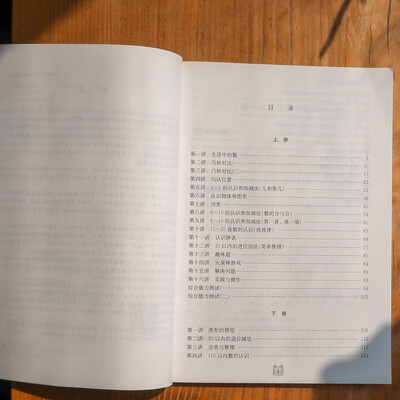 目 录
上 册
第一讲 生活中的数 1
第二讲 巧妙对比(一)
第三讲 巧妙对比(二)
第四讲 巧认位置
第五讲 1~5的认识和加减法(几和第几)
第六讲 认识物体和图形
第七讲 分类
第八讲 6~10的认识和加减法(数的分与合)
第九讲 6~10的认识和加减法(算一算,填一填)
第十讲 11~20各数的认识(找规律)
第十一讲 认识钟表
第十二讲 20以内的进位加法(简单推理)
第十三讲 趣味题
第十四讲 火柴棒游戏
第十五讲 解决问题
第十六讲 实践与操作
综合能力测试(一)
综合能力测试(二)
下 册
第一讲 图形的拼组
第二讲 20以内的退位减法
第三讲 分类与整理
第四讲 100以内数的认识